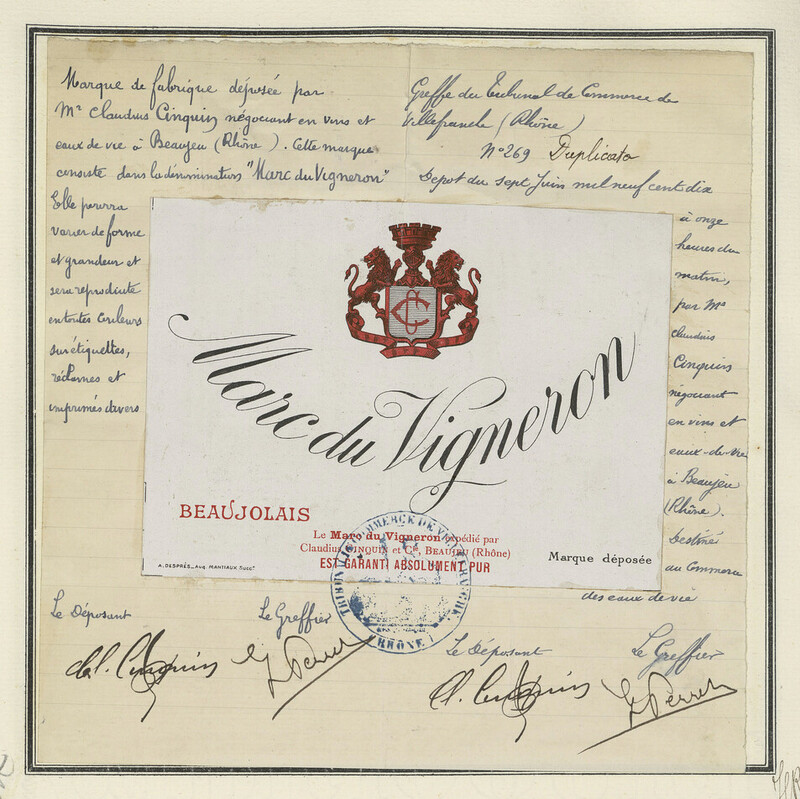 Marque de fabrique déposée par
Mr Claudius Cinquin négociant en vins et
eaux de vie à Beaujeu (Rhône). Cette marque
consiste dans la dénomination "Marc du Vigneron"
Elle pourra
varier de forme
et grandeur et
sera reproduite
en toutes couleurs
sur étiquettes,
réclames et
imprimés divers
Greffe du Tribunal de Commerce de
Villefranche (Rhône)
N° 269 Duplicata
Depot du sept Juin mil neuf cent dix
à onze
heures du
matin,
par Mr
Claudius
Cinquin
négociant
en vins et
eaux-de-vie
à Beaujeu
(Rhône).
Destiné
au Commerce
des eaux de vie
CC
Marc du Vigneron
BEAUJOLAIS
Le Marc du Vigneron expédié par
Claudius CINQUIN et Cie, BEAUJEU (Rhône)
EST GARANTI ABSOLUMENT PUR
A. DESPRÉS_Aug. MANTIAUX Succr
Marque déposée
TRIBUNAL DE COMMERCE DE VILLEFRANCHE
RHÔNE
Le Déposant
Le Greffier
Cl. Cinquin
Perret
Le Déposant
Le Greffier
Cl. Cinquin
Perret